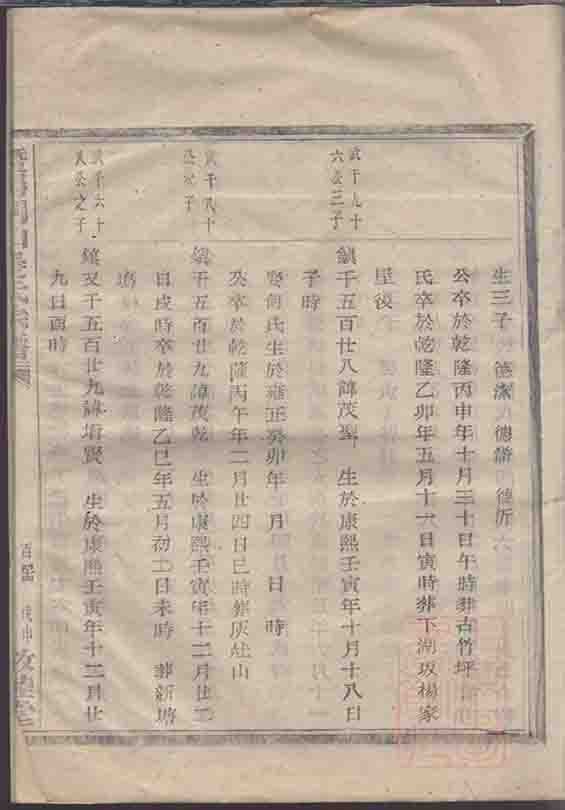 生三子 德 德 德沂
公卒於乾隆丙申年十月三十日午時葬古竹坪
氏卒於乾隆乙卯年五月十一日寅時葬下湖坂楊家
屋後
武千九十
六公三子
鎮千五百廿八諱茂聖 生於康熙壬寅年十月十八日
子時
娶何氏生於雍正癸卯年 月 日 時
公卒於乾隆丙午年二月廿四日巳時葬灰灶山
千八十
子
鎮千五百廿九諱茂乾 生於康熙壬寅年十二月廿二
日戌時卒於乾隆乙巳年五月初二日未時 葬新塘
塢
武千六十
公之子
鎮又千五百廿九諱 賢 生於康熙壬寅年十二月廿
九日酉時
氏宗譜
戊申 敦 堂